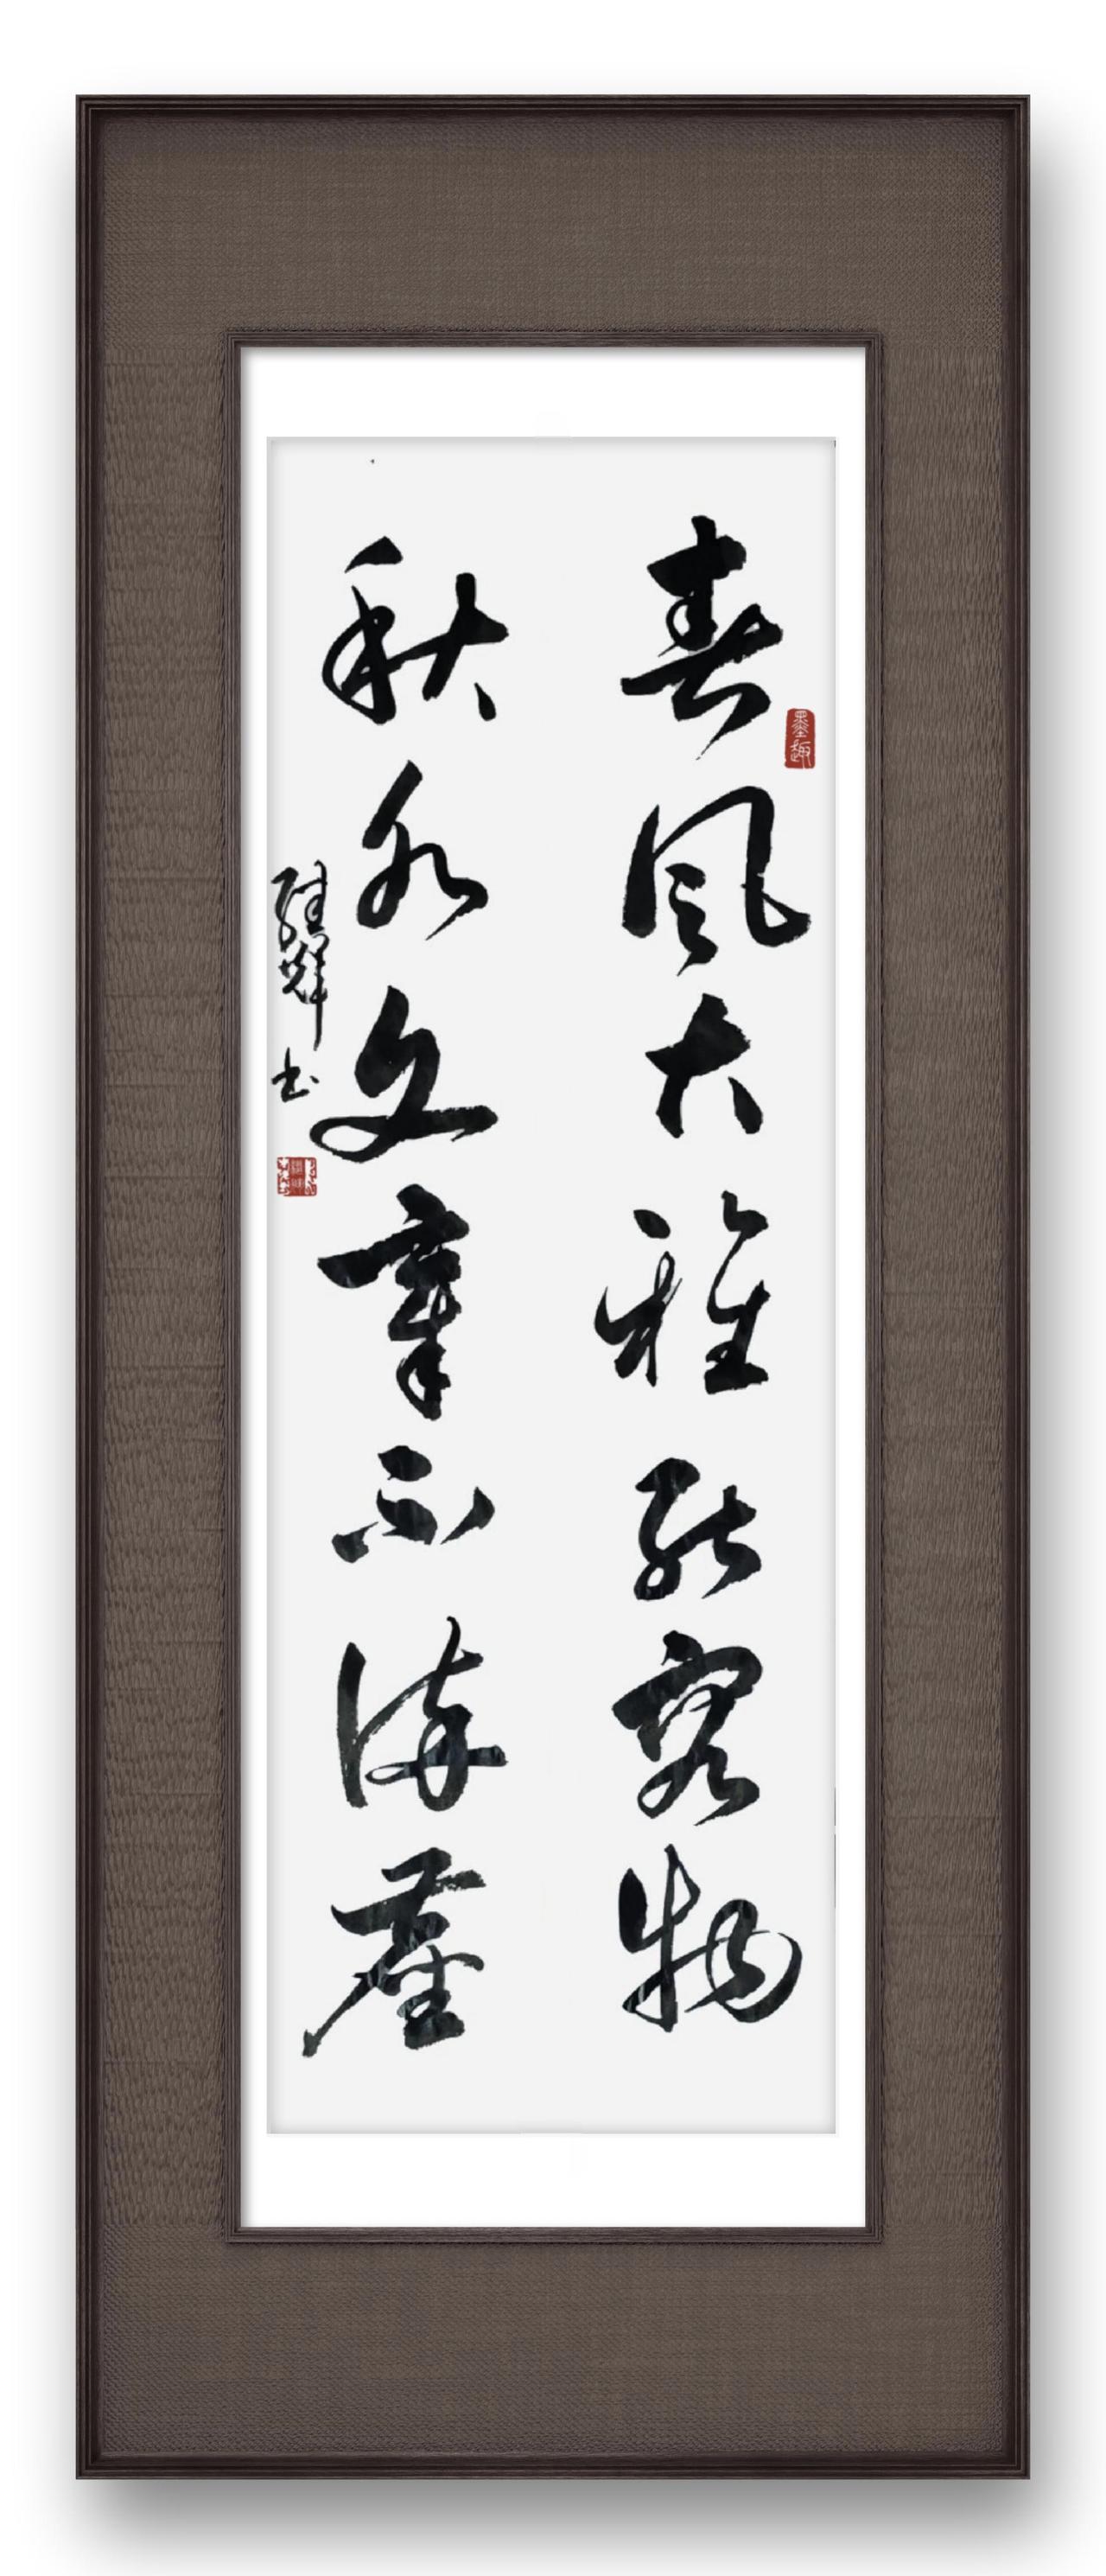 春风大雅能容物
秋水文章不染尘
墨趣